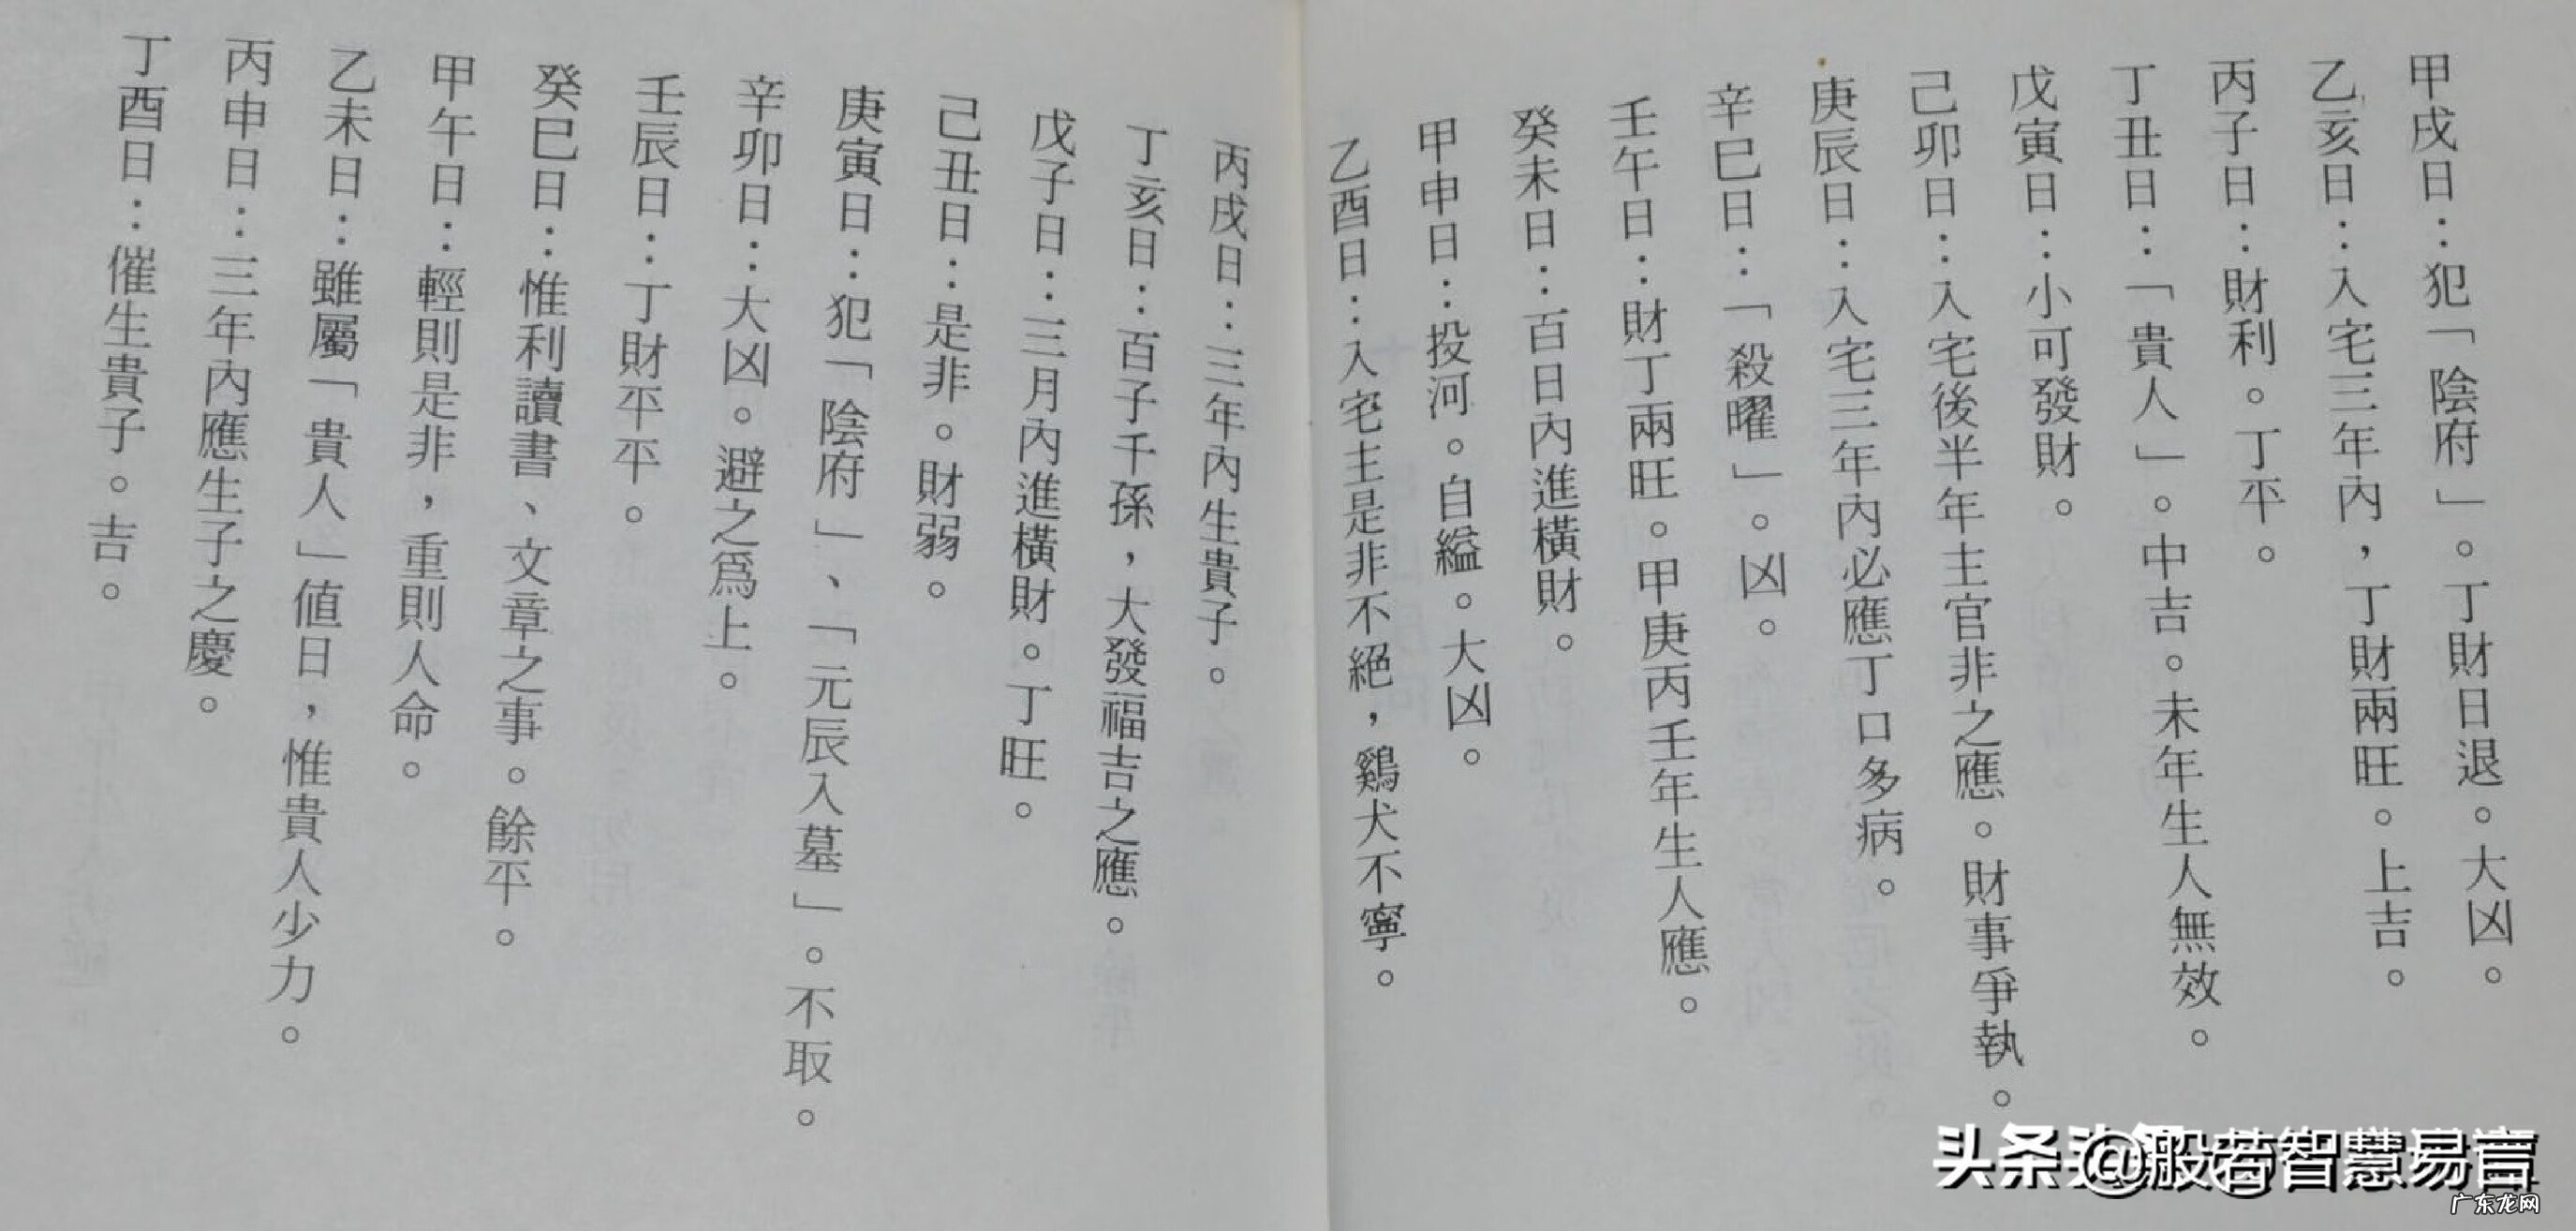 甲戌日：犯「陰府」。丁財日退。大凶。
乙亥日：入宅三年內，丁財兩旺。上吉。
丙子日：財利。丁平。
丁丑日：「貴人」。中吉。未年生人無效。
戊寅日：小可發財。
己卯日：入宅後半年主官非之應。財事爭執。
庚辰日：入宅三年內必應丁口多病。
辛巳日：「殺曜」。凶。
壬午日：財丁兩旺。甲庚丙壬年生人應。
癸未日：百日內進橫財。
甲申日：投河。自縊。大凶。
乙酉日：入宅主是非不絕，鷄犬不寧。
丙戌日：三年內生貴子。
丁亥日：百子千孫，大發福吉之應。
戊子日：三月內進橫財。丁旺。
己丑日：是非。財弱。
庚寅日：犯「陰府」、「元辰入墓」。不取。
辛卯日：大凶。避之爲上。
壬辰日：丁財平平。
癸巳日：惟利讀書、文章之事。餘平。
甲午日：輕則是非，重則人命。
乙未日：雖屬「貴人」値日，惟貴人少力。
丙申日：三年內應生子之慶。
丁酉日：催生貴子。吉。
头条 @般若智慧易言
广东龙网